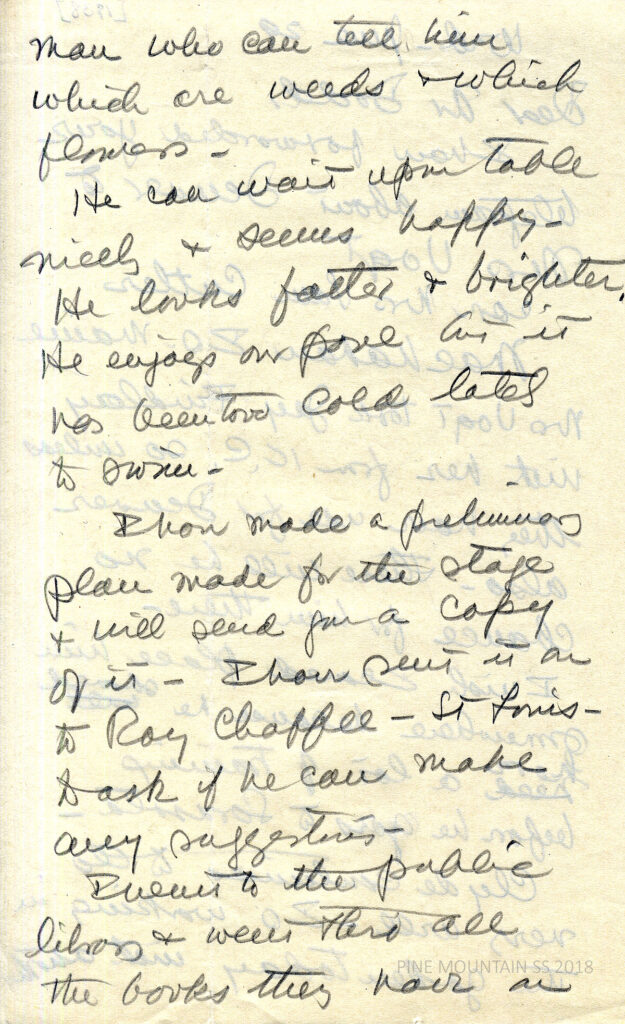 man who can tell him
which are weeds & which
flowers -
He can wait upon table
nicely & seems happy -
He looks fatter & brighter.
He enjoys our pool but it
has been too cold lately
to swim -
I have made a preliminary
plan made for the stage
& will send you a copy
of it - I have sent it on
to Roy Chaffee - St Louis -
to ask if he can make
any suggestions -
I went to the public
library & went thro all
the books they have on
PINE MOUNTAIN SS 2018